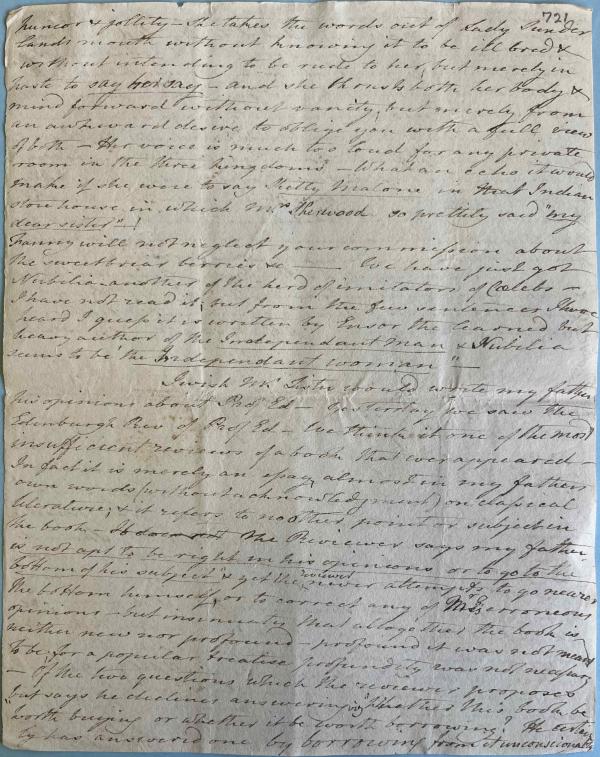 721
humor & jollity – She takes the words out of Lady Sunder
lands mouth without knowing it to be ill bred &
without intending to be rude to her, but merely in
haste to say her say – and she thrusts both her body &
mind forward without vanity, but merely from
an awkward desire to oblige you with a full view
of both – Her voice is much too loud for any private
room in the three kingdoms – What an echo it would
make if she were to say Kitty Malone in that Indian
store house in which Mrs. Sherwood so prettily said "my
dear sister" – !
Fanny will not neglect your commission about
the sweetbriar berries &c —— We have just got
Nubilia another of the herd of imitators of Cœlebs –
I have not read it, but from the few sentences I have
heard I guess it is written by Ensor the learned but
heavy author of the Independant Man & Nubilia
seems to be the Independant woman" –
I wish Mr. would write my father
his opinions about Prof Ed – Yesterday we saw the
Edinburgh Rev of Prof Ed – We think it one of the most
insufficient reviews of a book that ever appeared –
In fact it is merely an essay, almost in my fathers
own words (without acknowledgment) on classical
literature; & it refers to no other point or subject in
the book – It does not The Reviewer says my father
is not apt to be right in his opinions or to go to the
bottom of his subject" & yet the reviewer never attempts to go nearer
the bottom himself, or to correct any of Mr E's erroneous
opinions – but insinuates that altogether the book is
neither new nor profound – profound it was not meant
to be; for a popular treatise profundity was not necessary
– Of the two questions which the reviewer proposes
but says he declines answering, viz "Whether this book be
worth buying or whether it be worth borrowing? He certain
ly has answered one by borrowing from it unconscionably